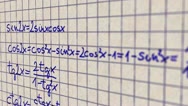 sin2x=2sinxcosx
cos2x=cos²x-sin²x=2cos²x-1=1-sin²x=
tg2x=2tgx/1-tg²x